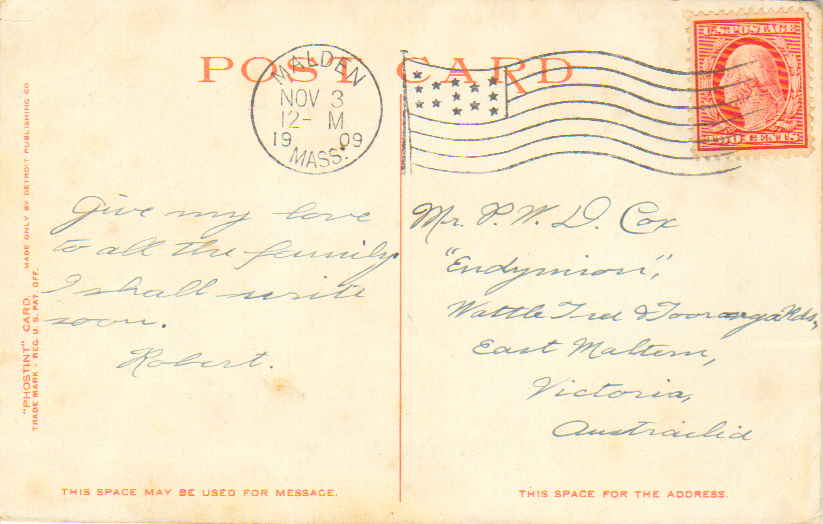 POST CARD
U.S. POSTAGE
TWO CENTS
MALDEN
NOV 3
12- M
19 09
MASS.
Give my love
to all the family
I shall write
soon.
Robert.
Mr. P. W. D. Cox
"Endymion",
Wattle Tree & Tooronga Rds,
East Maltern,
Victoria,
Austrailia
"PHOSTINT" CARD, MADE ONLY BY DETROIT PUBLISHING CO.
TRADE MARK - REG. U. S. PAT. OFF.
THIS SPACE MAY BE USED FOR MESSAGE.
THIS SPACE FOR THE ADDRESS.